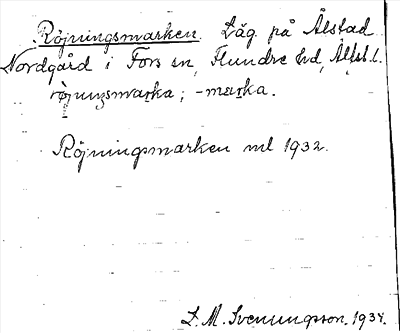 Röjningsmarken. Läg. på Ålstad
Nordgård i Fors sn, Flundre hd, Älfsb. l.
röjnuŋsmarka; -marka.
Röjningsmarken ml 1932.
L. M. Svenungsson, 1934.